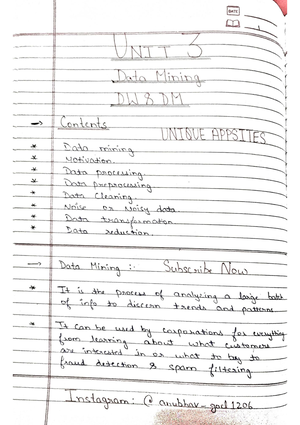 DATE
1
UNIT 3
Data Mining
DW & DM
→ Contents
UNIQUE APPSITES
* Data mining
* Motivation.
* Data processing.
* Data preprocessing.
* Data Cleaning.
* Noise or Noisy data.
* Data transformation
* Data reduction.
→ Data Mining :- Subscribe Now
* It is the process of analyzing a large batch
of info to discern trends and patterns
* It can be used by corporations for everything
from learning about what customers
are interested in or what to buy to
fraud detection & spam filtering
Instagram : @ anubhav_goel1206